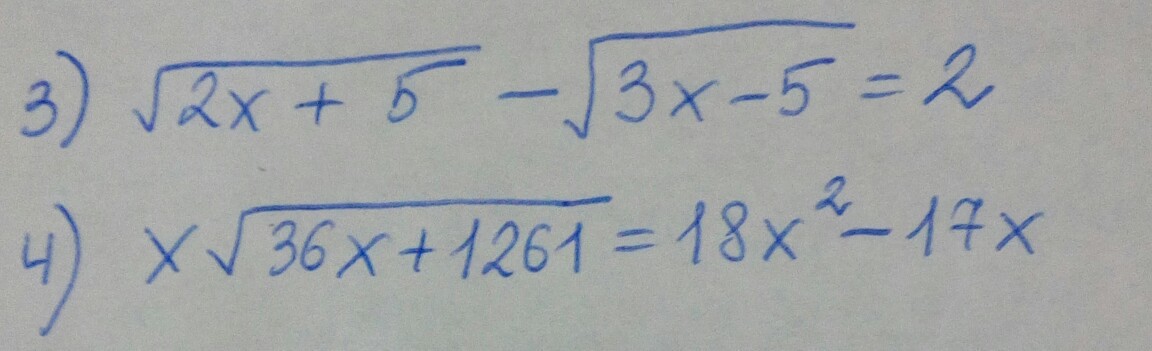 3) √(2x + 5) - √(3x - 5) = 2
4) x√(36x + 1261) = 18x² - 17x